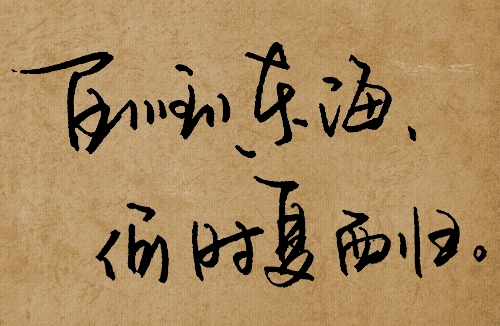 百川到东海、
何时夏西归。